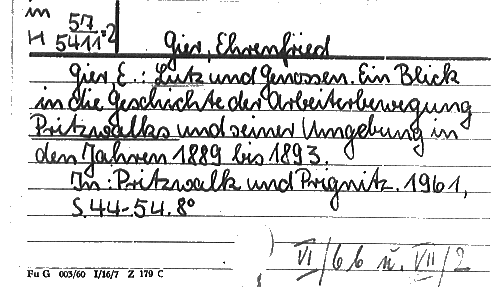 in
H 57/5411:2
Gier, Ehrenfried
Gier, E.: Lutz und Genossen. Ein Blick
in die Geschichte der Arbeiterbewegung
Pritzwalks und seiner Umgebung in
den Jahren 1889 bis 1893.
In: Pritzwalk und Prignitz. 1961,
S. 44-54. 8°
VI/6b u. VII/2
Fu G 005/60 I/16/7 Z 179 C